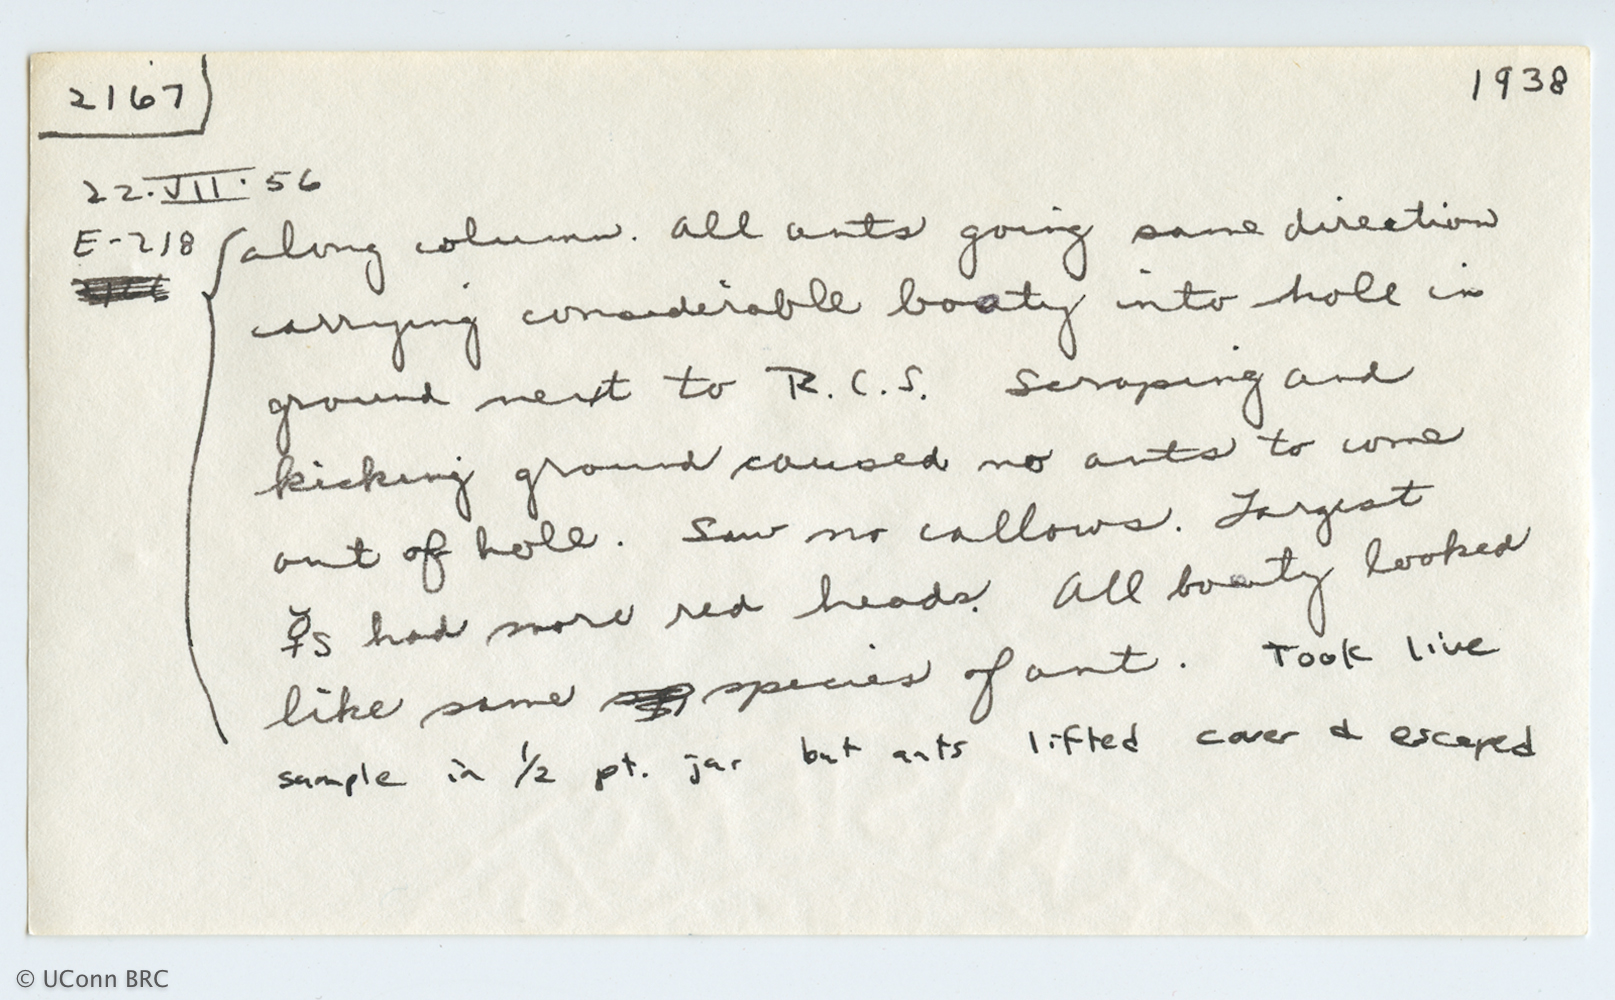 2167
1938
22.VII.56
E-218
along column. All ants going same direction
carrying considerable booty into hole in
ground next to R.C.S. Scraping and
kicking ground caused no ants to come
out of hole. Saw no callows. Largest
☿s had more red heads. All booty looked
like same species of ant. Took live
sample in 1/2 pt. jar but ants lifted cover & escaped
© UConn BRC